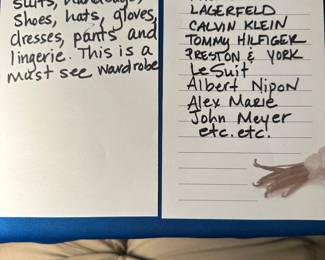 suits, handbags,
Shoes, hats, gloves,
dresses, pants and
lingerie. This is a
must see wardrobe
LAGERFELD
CALVIN KLEIN
TOMMY HILFIGER
PRESTON & YORK
Le Suit
Albert Nipon
Alex Marie
John Meyer
etc. etc.